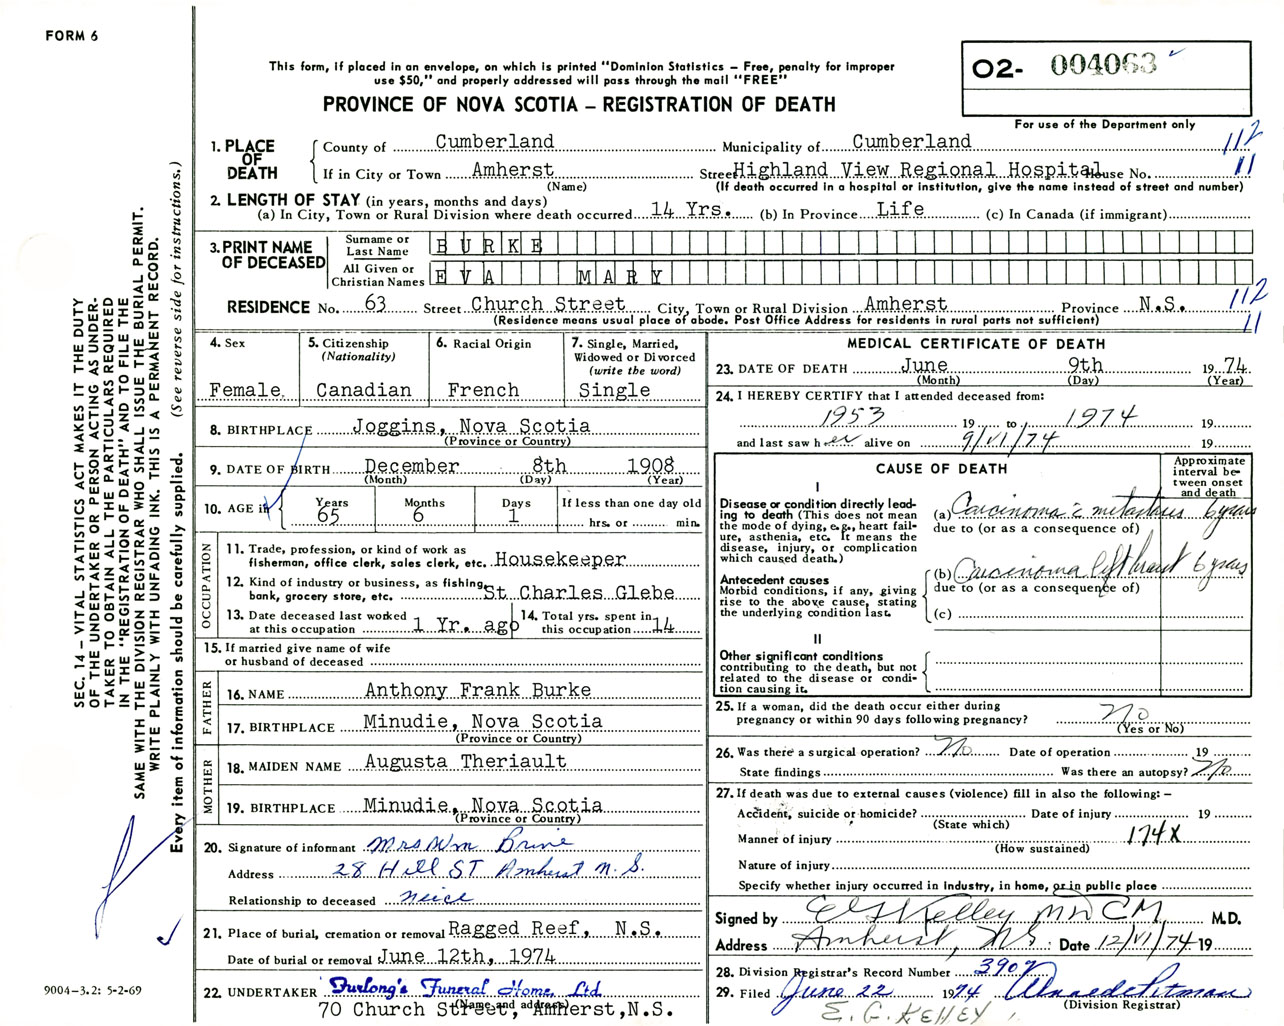 FORM 6
This form, if placed in an envelope, on which is printed "Dominion Statistics – Free, penalty for improper
use $50," and properly addressed will pass through the mail "FREE"
PROVINCE OF NOVA SCOTIA – REGISTRATION OF DEATH
02- 004063
For use of the Department only
1. PLACE OF DEATH
County of Cumberland Municipality of Cumberland 112
If in City or Town Amherst Street Highland View Regional Hospital House No. 11
(Name) (If death occurred in a hospital or institution, give the name instead of street and number)
2. LENGTH OF STAY (in years, months and days)
(a) In City, Town or Rural Division where death occurred 14 Yrs. (b) In Province Life (c) In Canada (if immigrant)
3. PRINT NAME OF DECEASED
Surname or Last Name BURKE
All Given or Christian Names EVA MARY
RESIDENCE No. 63 Street Church Street City, Town or Rural Division Amherst Province N.S. 112
(Residence means usual place of abode. Post Office Address for residents in rural parts not sufficient) 11
4. Sex
Female
5. Citizenship
(Nationality)
Canadian
6. Racial Origin
French
7. Single, Married,
Widowed or Divorced
(write the word)
Single
8. BIRTHPLACE Joggins, Nova Scotia
(Province or Country)
9. DATE OF BIRTH December 8th 1908
(Month) (Day) (Year)
10. AGE if
Years 65 Months 6 Days 1
If less than one day old
hrs. or min.
OCCUPATION
11. Trade, profession, or kind of work as
fisherman, office clerk, sales clerk, etc. Housekeeper
12. Kind of industry or business, as fishing,
bank, grocery store, etc. St Charles Glebe
13. Date deceased last worked
at this occupation 1 Yr. ago
14. Total yrs. spent in
this occupation 14
15. If married give name of wife
or husband of deceased
FATHER
16. NAME Anthony Frank Burke
17. BIRTHPLACE Minudie, Nova Scotia
(Province or Country)
MOTHER
18. MAIDEN NAME Augusta Theriault
19. BIRTHPLACE Minudie, Nova Scotia
(Province or Country)
20. Signature of informant Mrs Wm Brine
Address 28 Hill ST Amherst N.S.
Relationship to deceased neice
21. Place of burial, cremation or removal Ragged Reef, N.S.
Date of burial or removal June 12th, 1974
22. UNDERTAKER Furlong's Funeral Home, Ltd.
(Name and address)
70 Church Street, Amherst, N.S.
MEDICAL CERTIFICATE OF DEATH
23. DATE OF DEATH June 9th 1974
(Month) (Day) (Year)
24. I HEREBY CERTIFY that I attended deceased from:
1953 19 to 1974 19
and last saw her alive on 9/VI/74 19
CAUSE OF DEATH
Approximate
interval be-
tween onset
and death
I
Disease or condition directly lead-
ing to death (This does not mean
the mode of dying, e.g., heart fail-
ure, asthenia, etc. It means the
disease, injury, or complication
which caused death.)
(a) Carcinoma c̄ metastasis 6 years
due to (or as a consequence of)
Antecedent causes
Morbid conditions, if any, giving
rise to the above cause, stating
the underlying condition last.
(b) Carcinoma left breast 6 years
due to (or as a consequence of)
(c)
II
Other significant conditions
contributing to the death, but not
related to the disease or condi-
tion causing it.
25. If a woman, did the death occur either during
pregnancy or within 90 days following pregnancy? No
(Yes or No)
26. Was there a surgical operation? No Date of operation 19
State findings Was there an autopsy? No
27. If death was due to external causes (violence) fill in also the following: –
Accident, suicide or homicide? Date of injury 19
(State which)
Manner of injury 174X
(How sustained)
Nature of injury
Specify whether injury occurred in Industry, in home, or in public place
Signed by E G Kelley MD CM M.D.
Address Amherst, NS. Date 12/VI/74 19
28. Division Registrar's Record Number 3907
29. Filed June 22 1974
(Division Registrar)
E. G. KELLEY
SEC. 14 – VITAL STATISTICS ACT MAKES IT THE DUTY
OF THE UNDERTAKER OR PERSON ACTING AS UNDER-
TAKER TO OBTAIN ALL THE PARTICULARS REQUIRED
IN THE "REGISTRATION OF DEATH" AND TO FILE THE
SAME WITH THE DIVISION REGISTRAR WHO SHALL ISSUE THE BURIAL PERMIT.
WRITE PLAINLY WITH UNFADING INK. THIS IS A PERMANENT RECORD.
Every item of information should be carefully supplied. (See reverse side for instructions.)
9004-3.2: 5-2-69